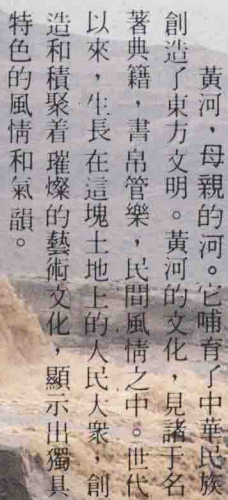 黃河，母親的河。它哺育了中華民族
創造了東方文明。黃河的文化，見諸于名
著典籍，書帛管樂，民間風情之中。世代
以來，生長在這塊土地上的人民大衆，創
造和積聚着璀燦的藝術文化，顯示出獨具
特色的風情和氣韻。